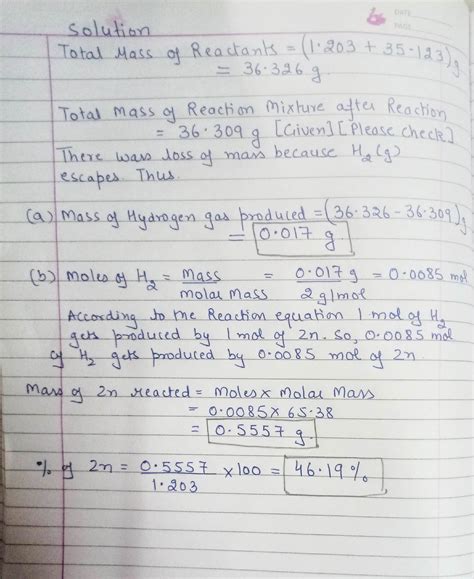 DATE
PAGE
Solution
Total Mass of Reactants = (1.203 + 35.123)g
= 36.326 g.
Total Mass of Reaction Mixture after Reaction
= 36.309 g [Given] [Please Check]
There was loss of mass because H2(g)
escapes. Thus.
(a) Mass of Hydrogen gas produced = (36.326 - 36.309)g
= 0.017 g.
(b) Moles of H2 = Mass / molar Mass = 0.017 g / 2 g/mol = 0.0085 mol
According to the Reaction equation 1 mol of H2
gets produced by 1 mol of Zn. So, 0.0085 mol
of H2 gets produced by 0.0085 mol of Zn.
Mass of Zn reacted = Moles × Molar Mass
= 0.0085 × 65.38
= 0.5557 g.
% of Zn = 0.5557 / 1.203 × 100 = 46.19%